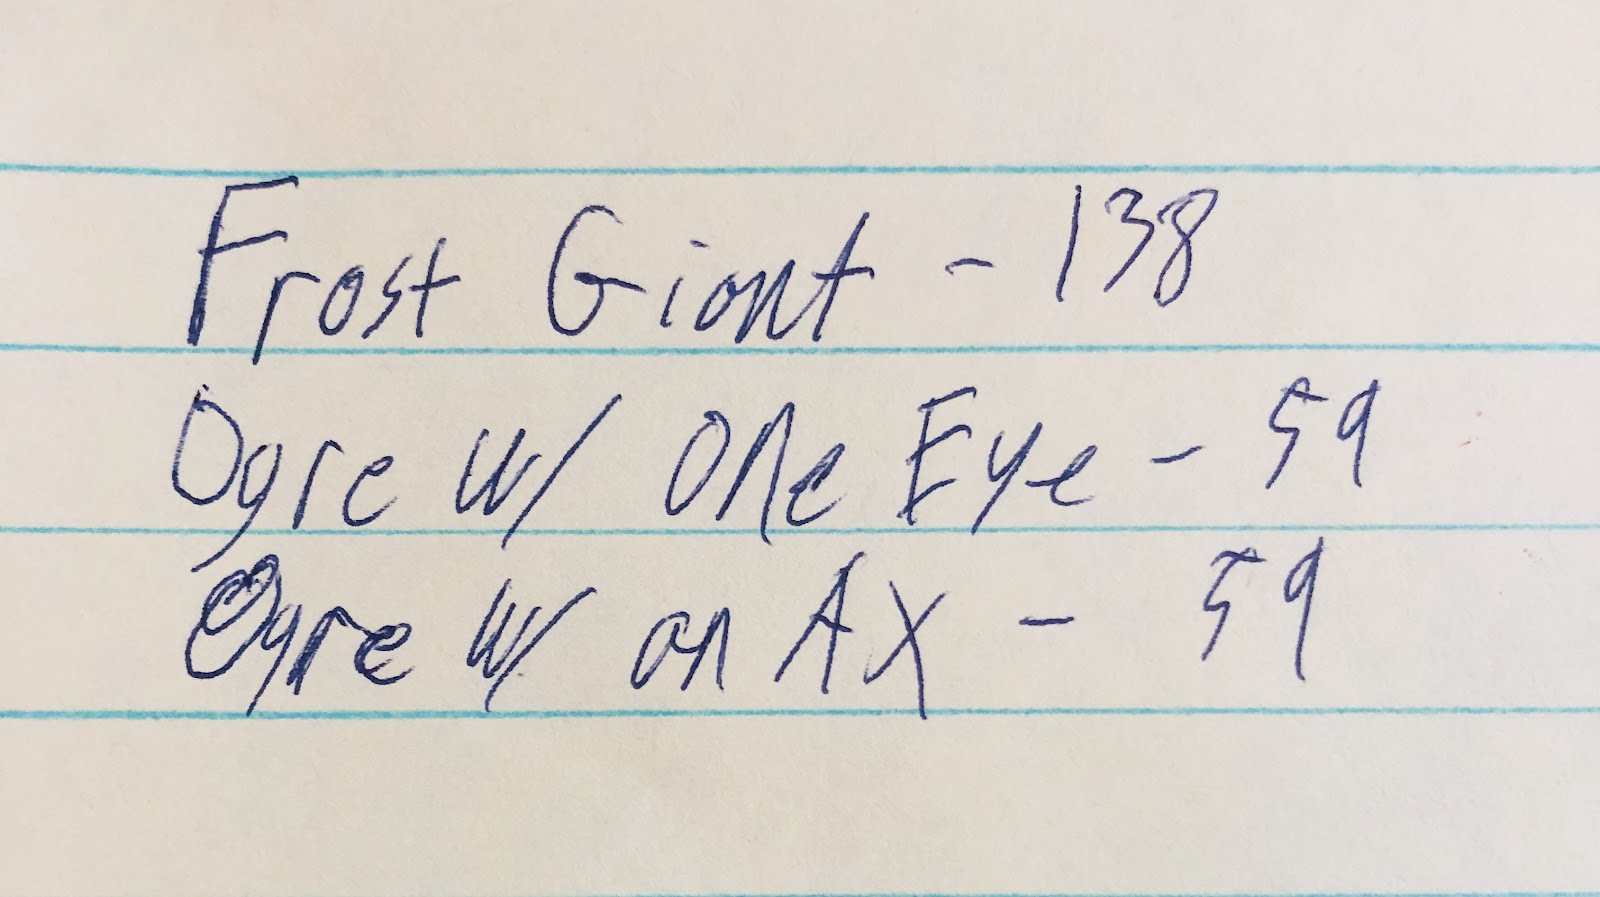 Frost Giant - 138
Ogre w/ One Eye - 59
Ogre w/ an Ax - 59